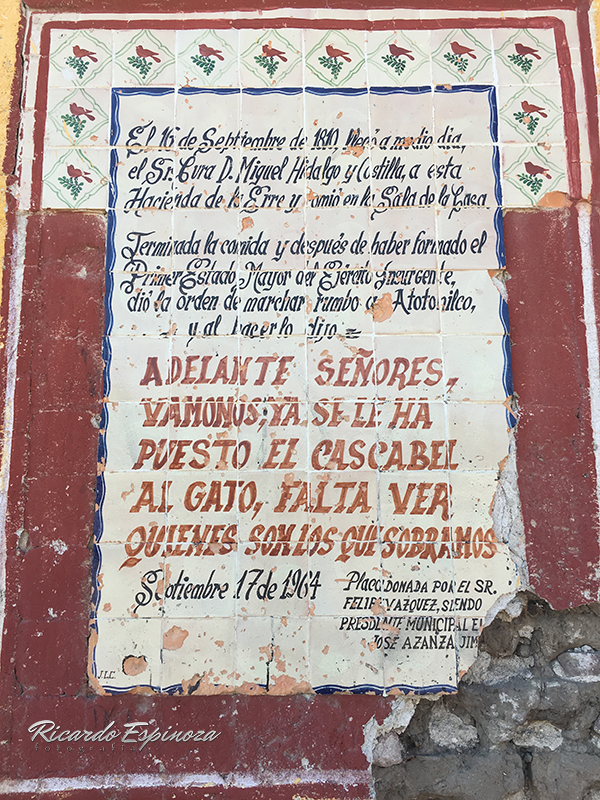 El 16 de Septiembre de 1810, llegó a medio dia,
el Sr. Cura D. Miguel Hidalgo y Costilla, a esta
Hacienda de la Erre y comió en la Sala de la Casa.
Terminada la comida y después de haber formado el
Primer Estado Mayor del Ejército Insurgente,
dió la orden de marchar rumbo a Atotonilco,
y al hacerlo dijo =
ADELANTE SEÑORES,
VAMONOS; YA SE LE HA
PUESTO EL CASCABEL
AL GATO, FALTA VER
QUIENES SOM LOS QUE SOBRAMOS
Septiembre 17 de 1964
Placa DONADA POR EL SR.
FELIPE VAZQUEZ, SIENDO
PRESDENTE MUNICIPAL EL
JOSE AZANZA JIM
J.L.C.
Ricardo Espinoza
fotografía